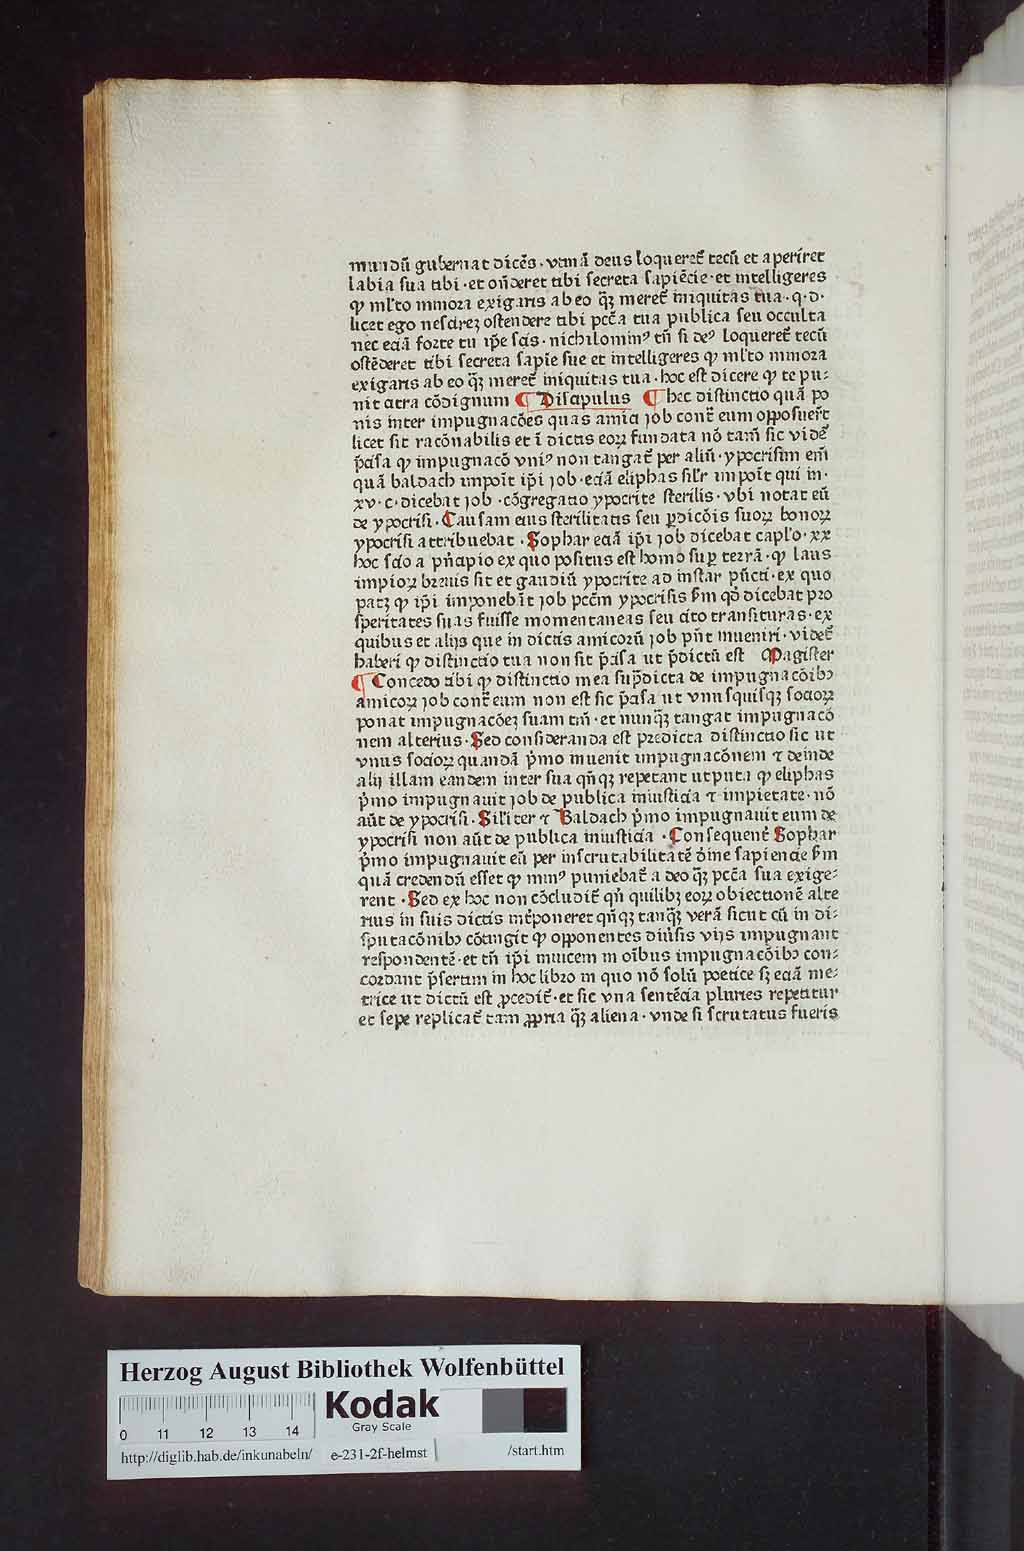 mundū gubernat dicēs · vtinā deus loqueret᷑ tecū et aperiret
labia sua tibi · et oñderet tibi secreta sapiēcie · et intelligeres
ꝙ ml̓to minora exigaris ab eo qᷓꝫ meret᷑ iniquitas tua · q · d ·
licet ego nescireꝫ ostendere tibi pccā tua publica seu occulta
nec eciā forte tu ip̄e scis · nichilominꝰ tn̄ si deꝰ loqueret᷑ tecū
ostēderet tibi secreta sapīe sue et intelligeres ꝙ ml̓to minora
exigaris ab eo qᷓꝫ meret᷑ iniquitas tua · hoc est dicere ꝙ te pu⸗
nit citra cōdignum ¶ Discipulus ¶ hec distinctio quā po
nis inter impugnacōes quas amici job cont᷑ eum opposuer̄t
licet sit racōnabilis et ī dictis eoꝝ fundata nō tam̄ sic videt᷑
p̄cisa ꝙ impugnacō vniꝰ non tangat᷑ per aliū · ypocrisim em̄
quā baldach impoīt ip̄i job · eciā eliphas sil̓r impoīt qui in ·
xv · c · dicebat job · cōgregatio ypocrite sterilis · vbi notat eū
de ypocrisi · Causam eius sterilitatis seu ꝑdicōis suoꝝ bonoꝝ
ypocrisi attribuebat · Sophar eciā ip̄i job dicebat capl̓o · xx
hoc scio a pn̄cipio ex quo positus est homo suꝑ terrā · ꝙ laus
impioꝝ breuis sit et gaudiū ypocrite ad instar pūcti · ex quo
patꝫ ꝙ ip̄i imponebāt job pccm̄ ypocrisis s̄m qd̓ dicebat pro
speritates suas fuisse momentaneas seu cito transituras · ex
quibus et alijs que in dictis amicorū job pn̄t inueniri · videt᷑
haberi ꝙ distinctio tua non sit p̄cisa ut p̄dictū est Magister
¶ Concedo tibi ꝙ distinctio mea sup̄dicta de impugnacōibꝫ
amicoꝝ job cont᷑ eum non est sic p̄cisa ut vnusquisqꝫ socioꝝ
ponat impugnacōeꝫ suam tm̄ · et nunqᷓꝫ tangat impugnacō
nem alterius · Sed consideranda est predicta distinctio sic ut
vnus socioꝝ quandā p̓mo inuenit impugnacōnem ⁊ deinde
alij illam eandem inter sua qn̄qꝫ repetant utputa ꝙ eliphas
p̓mo impugnauit job de publica iniusticia ⁊ impietate · nō
aūt de ypocrisi · Sil̓iter ⁊ Baldach p̓mo impugnauit eum de
ypocrisi non aūt de publica iniusticia · Consequent᷑ Sophar
p̓mo impugnauit eū per inscrutabilitatē diīne sapiencie s̄m
quā credendū esset ꝙ minꝰ puniebat᷑ a deo qᷓꝫ pccā sua exige⸗
rent · Sed ex hoc non cōcludit᷑ qn̄ quilibꝫ eoꝝ obiectionē alte
rius in suis dictis int᷑poneret qn̄qꝫ tanqᷓꝫ verā sicut cū in di⸗
sputacōnibꝫ cōtingit ꝙ opponentes diūsis vijs impugnant
respondentē · et tn̄ ip̄i inuicem in oībus impugnacōibꝫ con⸗
cordant p̄sertim in hoc libro in quo nō solū poetice sꝫ eciā me⸗
trice ut dictū est ꝓcedit᷑ · et sic vna sentēcia pluries repetitur
et sepe replicat᷑ tam ꝓpria qᷓꝫ aliena · vnde si scrutatus fueris
Herzog August Bibliothek Wolfenbüttel
Kodak
Gray Scale
0 11 12 13 14
http://diglib.hab.de/inkunabeln/ e-231-2f-helmst /start.htm